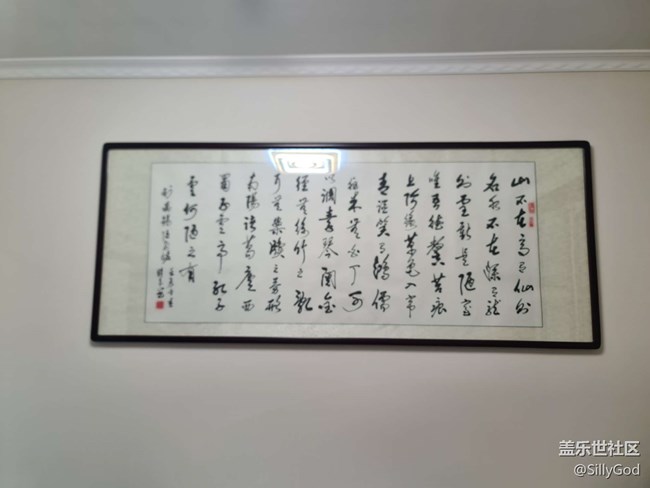 山不在高有仙则
名水不在深有龙
则灵斯是陋室
唯吾德馨苔痕
上阶绿草色入帘
青谈笑有鸿儒
往来无白丁可
以调素琴阅金
经无丝竹之乱
耳无案牍之劳形
南阳诸葛庐西
蜀子云亭孔子
云何陋之有
盖乐世社区
@SillyGod